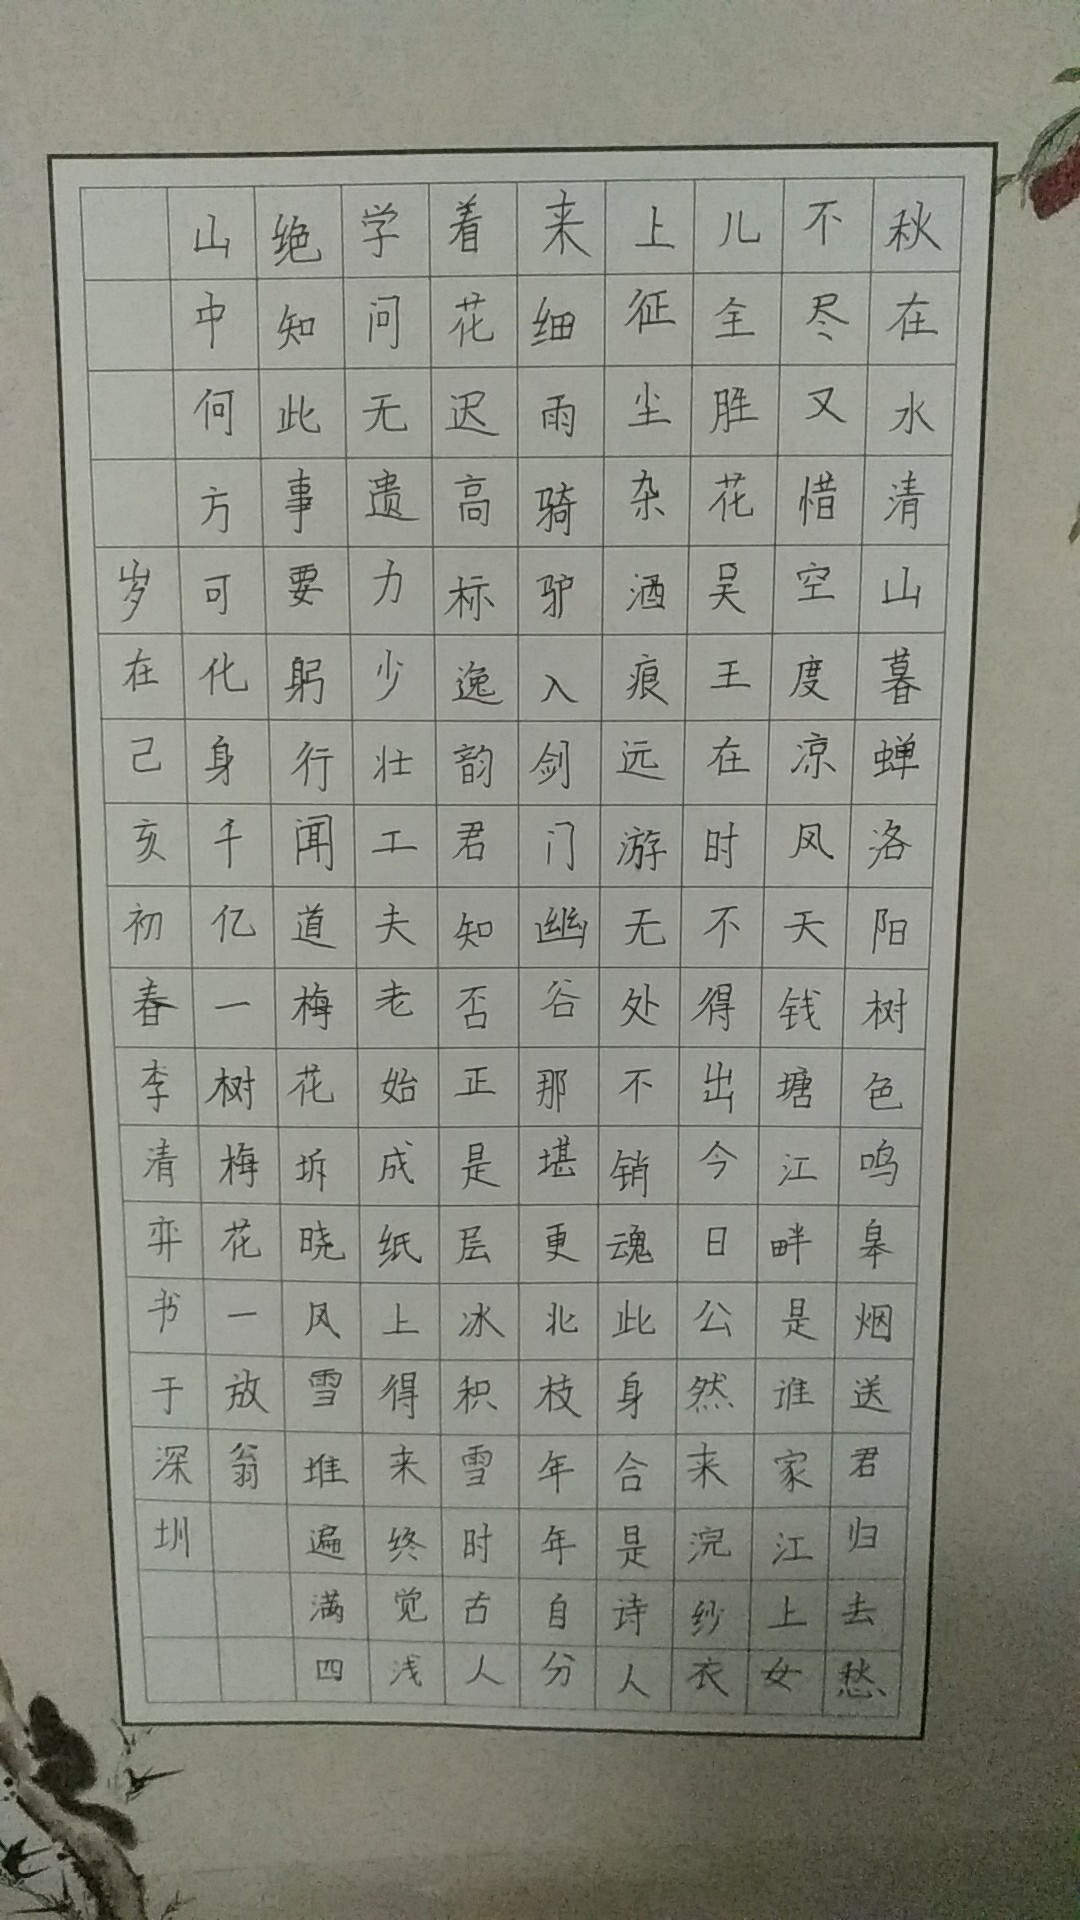 秋在水清山暮蝉洛阳树色鸣皋烟送君归去愁
不尽又惜空度凉风天钱塘江畔是谁家江上女
儿全胜花吴王在时不得出今日公然来浣纱衣
上征尘杂酒痕远游无处不销魂此身合是诗人
来细雨骑驴入剑门幽谷那堪更北枝年年自分
着花迟高标逸韵君知否正是层冰积雪时古人
学问无遗力少壮工夫老始成纸上得来终觉浅
绝知此事要躬行闻道梅花坼晓风雪堆遍满四
山中何方可化身千亿一树梅花一放翁
岁在己亥初春李清弈书于深圳